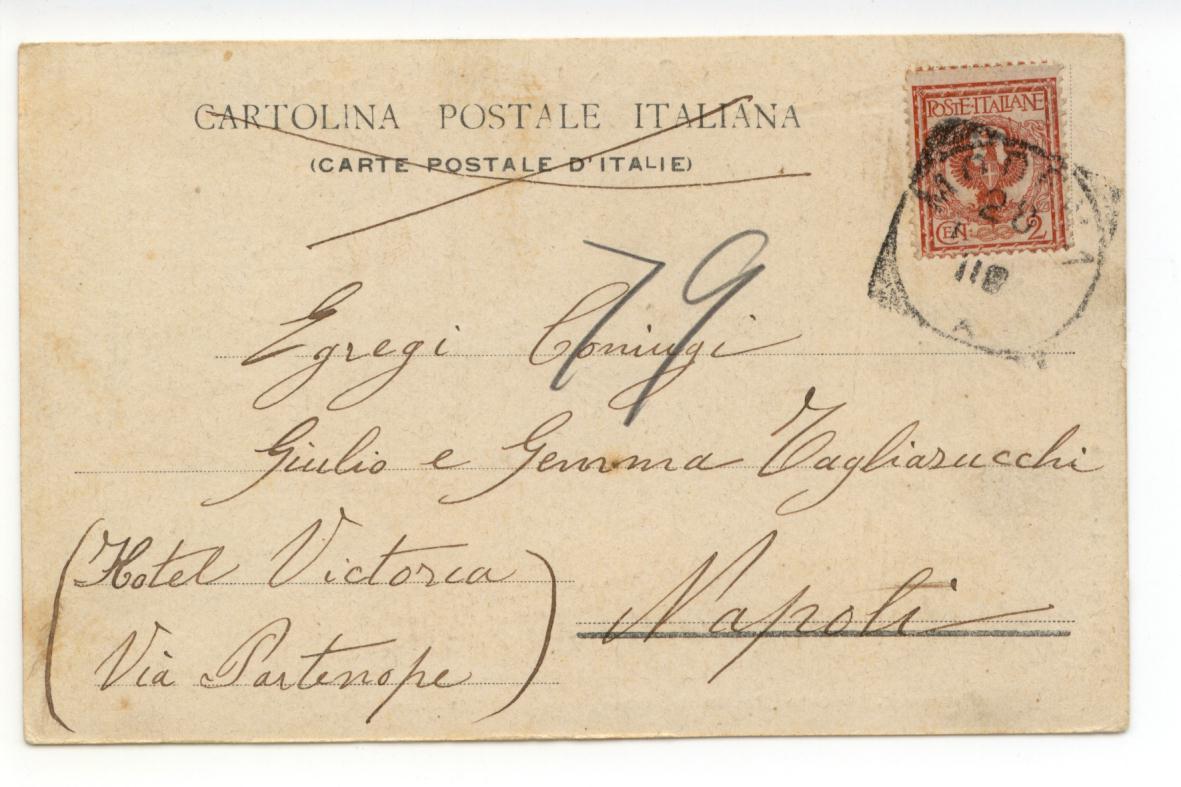 CARTOLINA POSTALE ITALIANA
(CARTE POSTALE D'ITALIE)
POSTE·ITALIANE
CEN: 2
20
79
Egregi Coniugi
Giulio e Gemma Tagliazucchi
(Hotel Victoria
Via Partenope)
Napoli